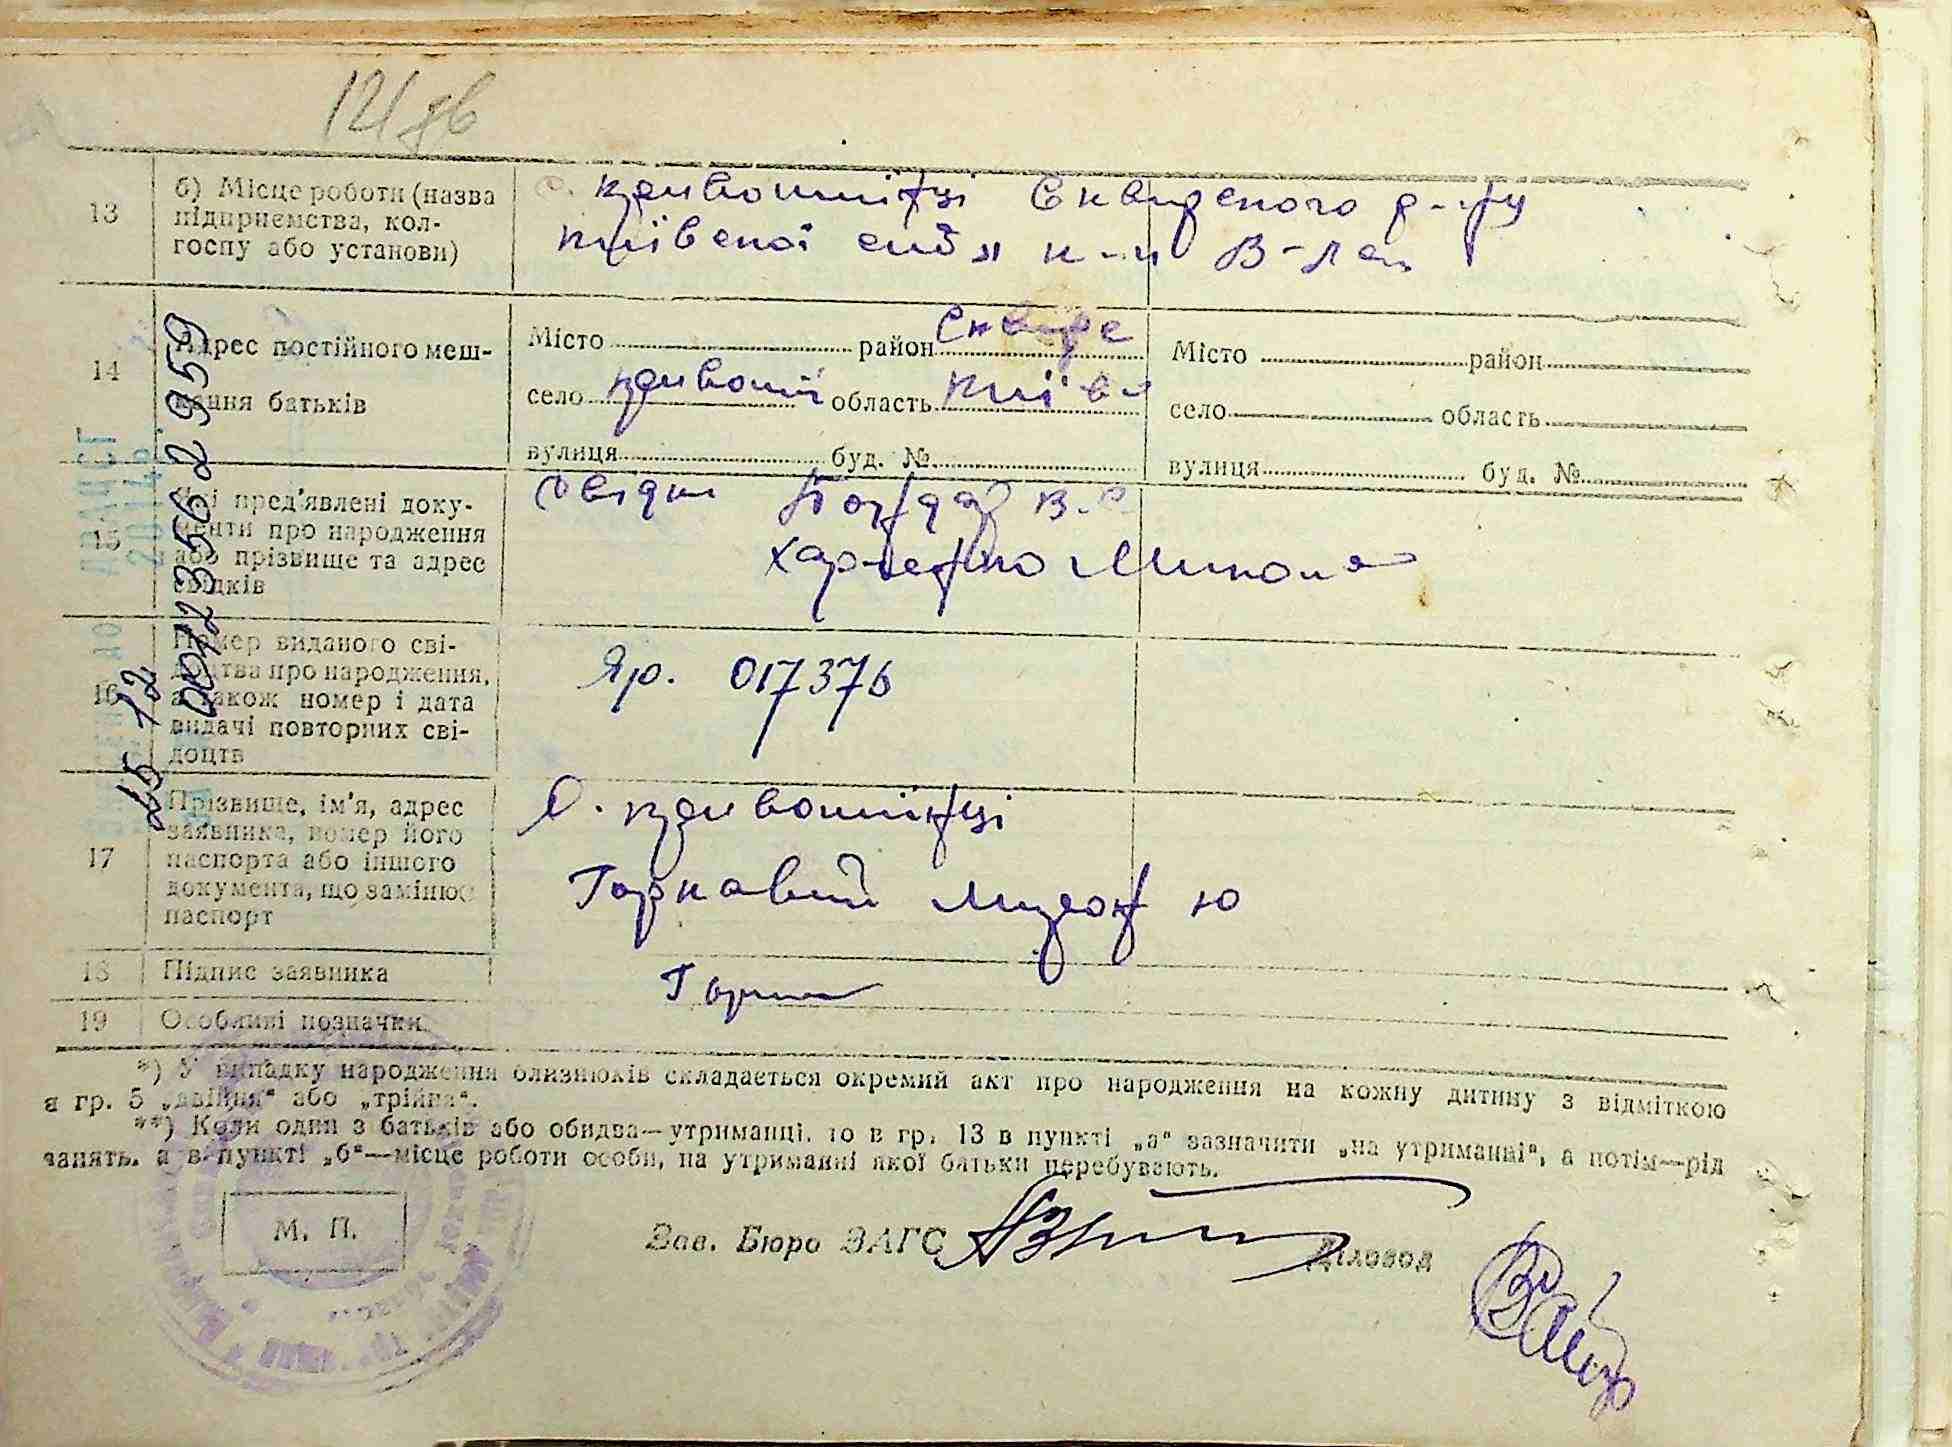 121 зв
13 б) Місце роботи (назва підприємства, кол-госпу або установи)
с. Кривошиїнці Сквирського р-ну
Київської обл
14 Адрес постійного меш-кання батьків
Місто район Сквир
село Кривош область Київ
вулиця буд. №
Місто район
село область
вулиця буд. №
15 Які пред'явлені доку-менти про народження або прізвище та адрес свідків
Свідки
Харченко Микола
16 Номер виданого сві-доцтва про народження, а також номер і дата видачі повторних сві-доцтв
Яр. 017376
17 Прізвище, ім'я, адрес заявника, номер його паспорта або іншого документа, що замінює паспорт
С. Кривошиїнці
Горкавий Мирон Ю
18 Підпис заявника
19 Особливі позначки
*) У випадку народження близнюків складається окремий акт про народження на кожну дитину з відміткою
в гр. 5 „двійня“ або „трійня“.
**) Коли один з батьків або обидва—утриманці, то в гр. 13 в пункті „а“ зазначити „на утриманні“, а потім—рід
занять, а в пункті „б“—місце роботи особи, на утриманні якої батьки перебувають.
М. П.
Зав. Бюро ЗАГС Діловод
00123562 9559